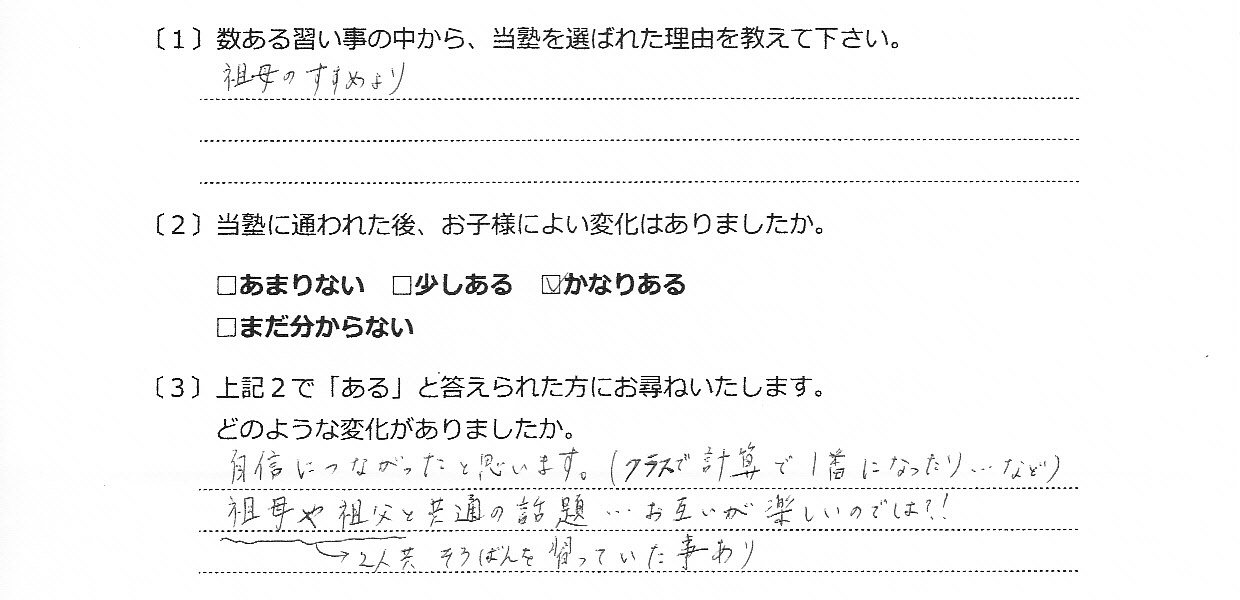 〔１〕数ある習い事の中から、当塾を選ばれた理由を教えて下さい。
祖母のすすめより
〔２〕当塾に通われた後、お子様によい変化はありましたか。
□あまりない　□少しある　☑かなりある
□まだ分からない
〔３〕上記２で「ある」と答えられた方にお尋ねいたします。
どのような変化がありましたか。
自信につながったと思います。(クラスで計算で1番になったり…など)
祖母や祖父と共通の話題…お互いが楽しいのでは?!
→2人共そろばんを習っていた事あり